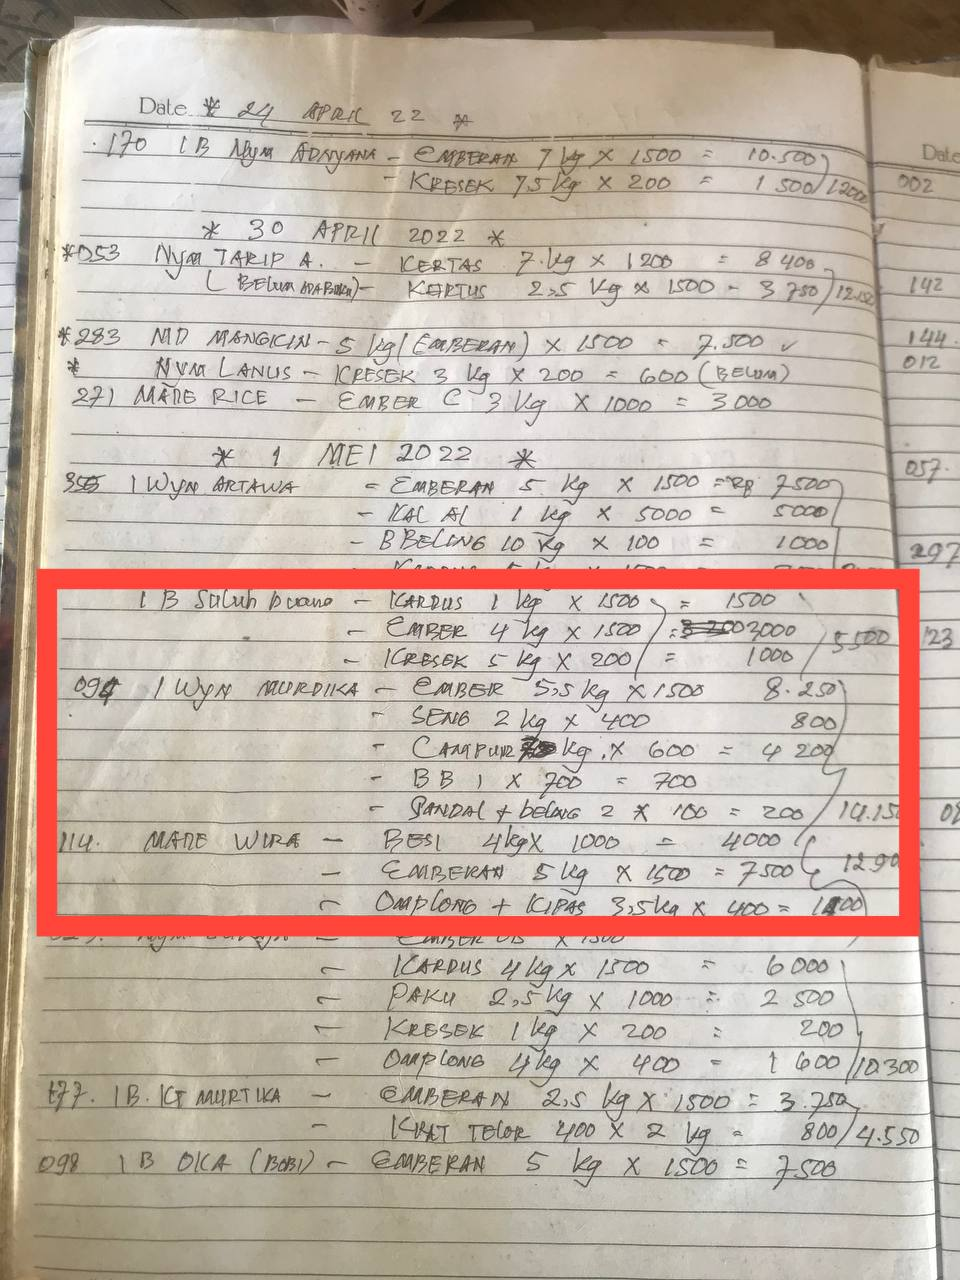 Date * 24 APRIL 22 *
170 I B Nym ADNYANA - EMBERAN 7 kg X 1500 = 10.500
- KRESEK 7,5 kg X 200 = 1 500 / 12000
002
Date
* 30 APRIL 2022 *
*053 Nym TARIP A. - KERTAS 7 kg X 1200 = 8 400
(BELUM ADA BUKU) - KERTUS 2,5 kg X 1500 = 3 750 / 12.150
142
*283 MD MANGKIN - 5 kg (EMBERAN) X 1500 = 7.500 ✓
144
* NYM LANUS - KRESEK 3 kg X 200 = 600 (BELUM)
012
271 MADE RICE - EMBER C 3 kg X 1000 = 3 000
* 1 MEI 2022 *
355 I WYN ARTAWA - EMBERAN 5 kg X 1500 = Rp 7500
057.
- KAL AL 1 kg X 5000 = 5000
- B BELING 10 kg X 100 = 1000
297
I B Suluh - KARDUS 1 kg X 1500 = 1500
- EMBER 4 kg X 1500 = 3000 / 5500
123
- KRESEK 5 kg X 200 = 1000
094 I Wyn MURDIKA - EMBER 5,5 kg X 1500 8.250
- SENG 2 kg X 400 800
- CAMPUR kg X 600 = 4 200
- B B 1 X 700 = 700
- SANDAL + beling 2 X 100 = 200 / 14.150
114. MADE WIRA - BESI 4 kg X 1000 = 4000
- EMBERAN 5 kg X 1500 = 7500 12.90
- OMPLONG + KIPAS 3,5 kg X 400 = 1400
- KARDUS 4 kg X 1500 = 6000
- PAKU 2,5 kg X 1000 = 2 500
- KRESEK 1 kg X 200 = 200
- OMPLONG 4 kg X 400 = 1 600 / 10.300
177. I B. KT MURTIKA - EMBERAN 2,5 kg X 1500 = 3.750
- KRAT TELOR 400 X 2 kg = 800 / 4.550
098 I B OKA (BOBI) - EMBERAN 5 kg X 1500 = 7500